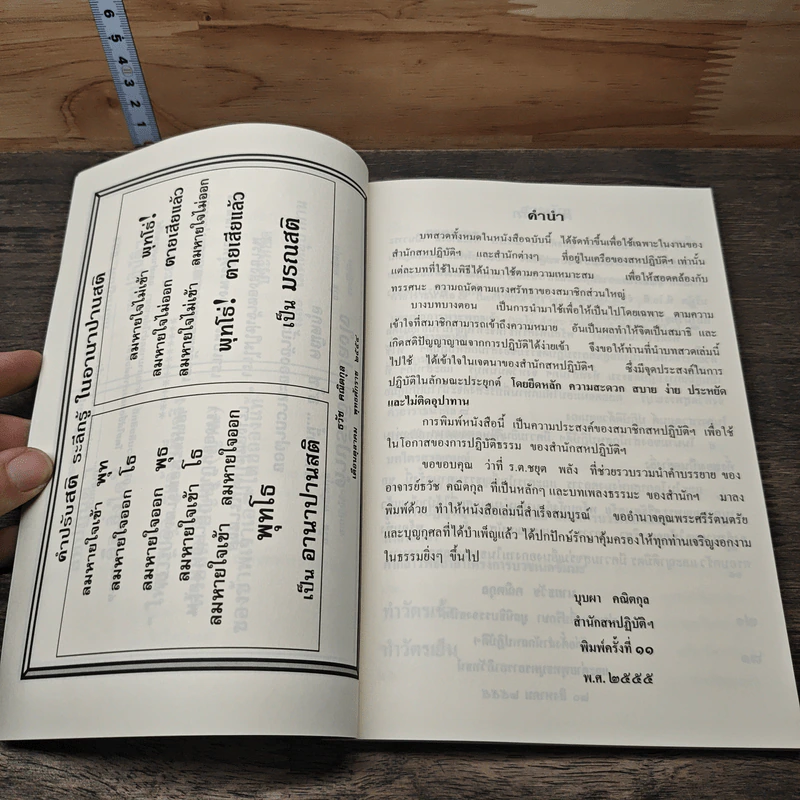 6 5 4 3 2 1
คำปรับสติ ระลึกรู้ ในอานาปานสติ
ลมหายใจเข้า พุท
ลมหายใจออก โธ
ลมหายใจออก พุธ
ลมหายใจเข้า โธ
ลมหายใจเข้า ลมหายใจออก
พุทโธ
เป็น อานาปานสติ
ลมหายใจไม่เข้า พุทโธ่!
ลมหายใจไม่ออก ตายเสียแล้ว
ลมหายใจไม่เข้า ลมหายใจไม่ออก
พุทโธ่! ตายเสียแล้ว
เป็น มรณสติ
ธวัช คณิตกุล
เดือนตุลาคม พุทธศักราช
คำนำ
บทสวดทั้งหมดในหนังสือฉบับนี้ ได้จัดทำขึ้นเพื่อใช้เฉพาะในงานของ
สำนักสหปฏิบัติฯ และสำนักต่างๆ ที่อยู่ในเครือของสหปฏิบัติฯ เท่านั้น
แต่ละบทที่ใช้ในพิธีได้นำมาใช้ตามความเหมาะสม เพื่อให้สอดคล้องกับ
ทรรศนะ ความถนัดตามแรงศรัทธาของสมาชิกส่วนใหญ่
บางบทบางตอน เป็นการนำมาใช้เพื่อให้เป็นไปโดยเฉพาะ ตามความ
เข้าใจที่สมาชิกสามารถเข้าถึงความหมาย อันเป็นผลทำให้จิตเป็นสมาธิ และ
เกิดสติปัญญาญาณจากการปฏิบัติได้ง่ายเข้า จึงขอให้ท่านที่นำบทสวดเล่มนี้
ไปใช้ ได้เข้าใจในเจตนาของสำนักสหปฏิบัติฯ ซึ่งมีจุดประสงค์ในการ
ปฏิบัติในลักษณะประยุกต์ โดยยึดหลัก ความสะดวก สบาย ง่าย ประหยัด
และไม่ติดอุปาทาน
การพิมพ์หนังสือนี้ เป็นความประสงค์ของสมาชิกสหปฏิบัติฯ เพื่อใช้
ในโอกาสของการปฏิบัติธรรม ของสำนักสหปฏิบัติฯ
ขอขอบคุณ ว่าที่ ร.ต.ชยุต พลัง ที่ช่วยรวบรวมนำคำบรรยาย ของ
อาจารย์ธวัช คณิตกุล ที่เป็นหลักๆ และบทเพลงธรรมะ ของสำนักฯ มาลง
พิมพ์ด้วย ทำให้หนังสือเล่มนี้สำเร็จสมบูรณ์ ขออำนาจคุณพระศรีรัตนตรัย
และบุญกุศลที่ได้บำเพ็ญแล้ว ได้ปกปักษ์รักษาคุ้มครองให้ทุกท่านเจริญงอกงาม
ในธรรมยิ่งๆ ขึ้นไป
บุบผา คณิตกุล
สำนักสหปฏิบัติฯ
พิมพ์ครั้งที่ ๑๑
พ.ศ. ๒๕๕๕